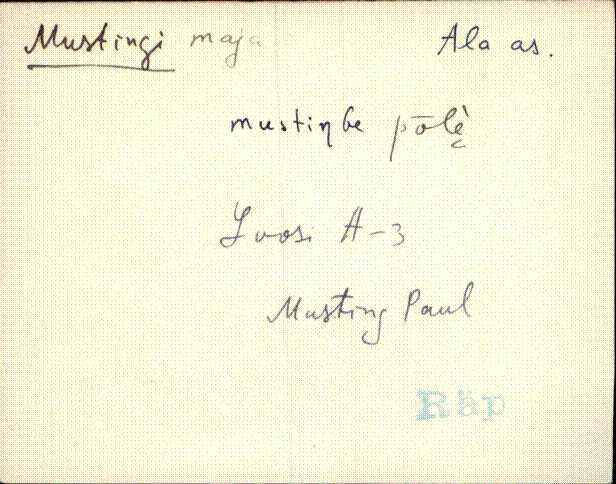 Mustingi maja Ala as.
mustiŋbe pōlè̬
Loosi A-3
Musting Paul
Räp